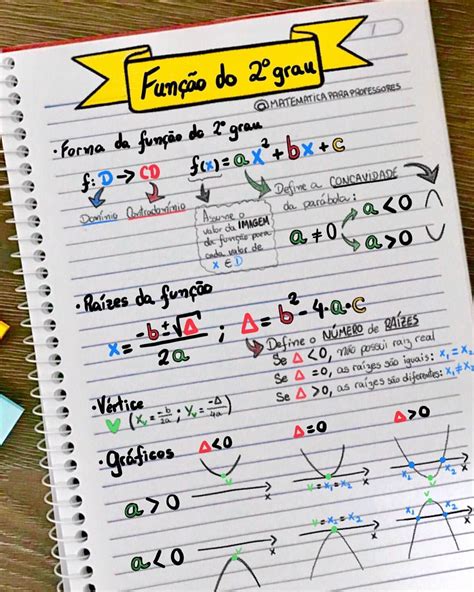 Função do 2º grau
@MATEMATICAPARAPROFESSORES
• Forma da função do 2º grau
f: D → CD
f(x) = ax² + bx + c
Domínio Contradomínio
Assume o
valor da IMAGEM
da função para
cada valor de
x ∈ D
Define a CONCAVIDADE
da parábola:
a ≠ 0
a < 0
a > 0
• Raízes da função
x = -b ± √Δ / 2a ; Δ = b² - 4·a·c
Define o NÚMERO de RAÍZES
Se Δ < 0, não possui raiz real
Se Δ = 0, as raízes são iguais: x₁ = x₂
Se Δ > 0, as raízes são diferentes: x₁ ≠ x₂
• Vértice
V (Xᵥ = -b/2a ; Yᵥ = -Δ/4a)
• Gráficos
Δ < 0
Δ = 0
Δ > 0
a > 0
V
x
V = x₁ = x₂
x
x₁
x₂
V
x
a < 0
V
x
V = x₁ = x₂
x
V
x₁
x₂
x